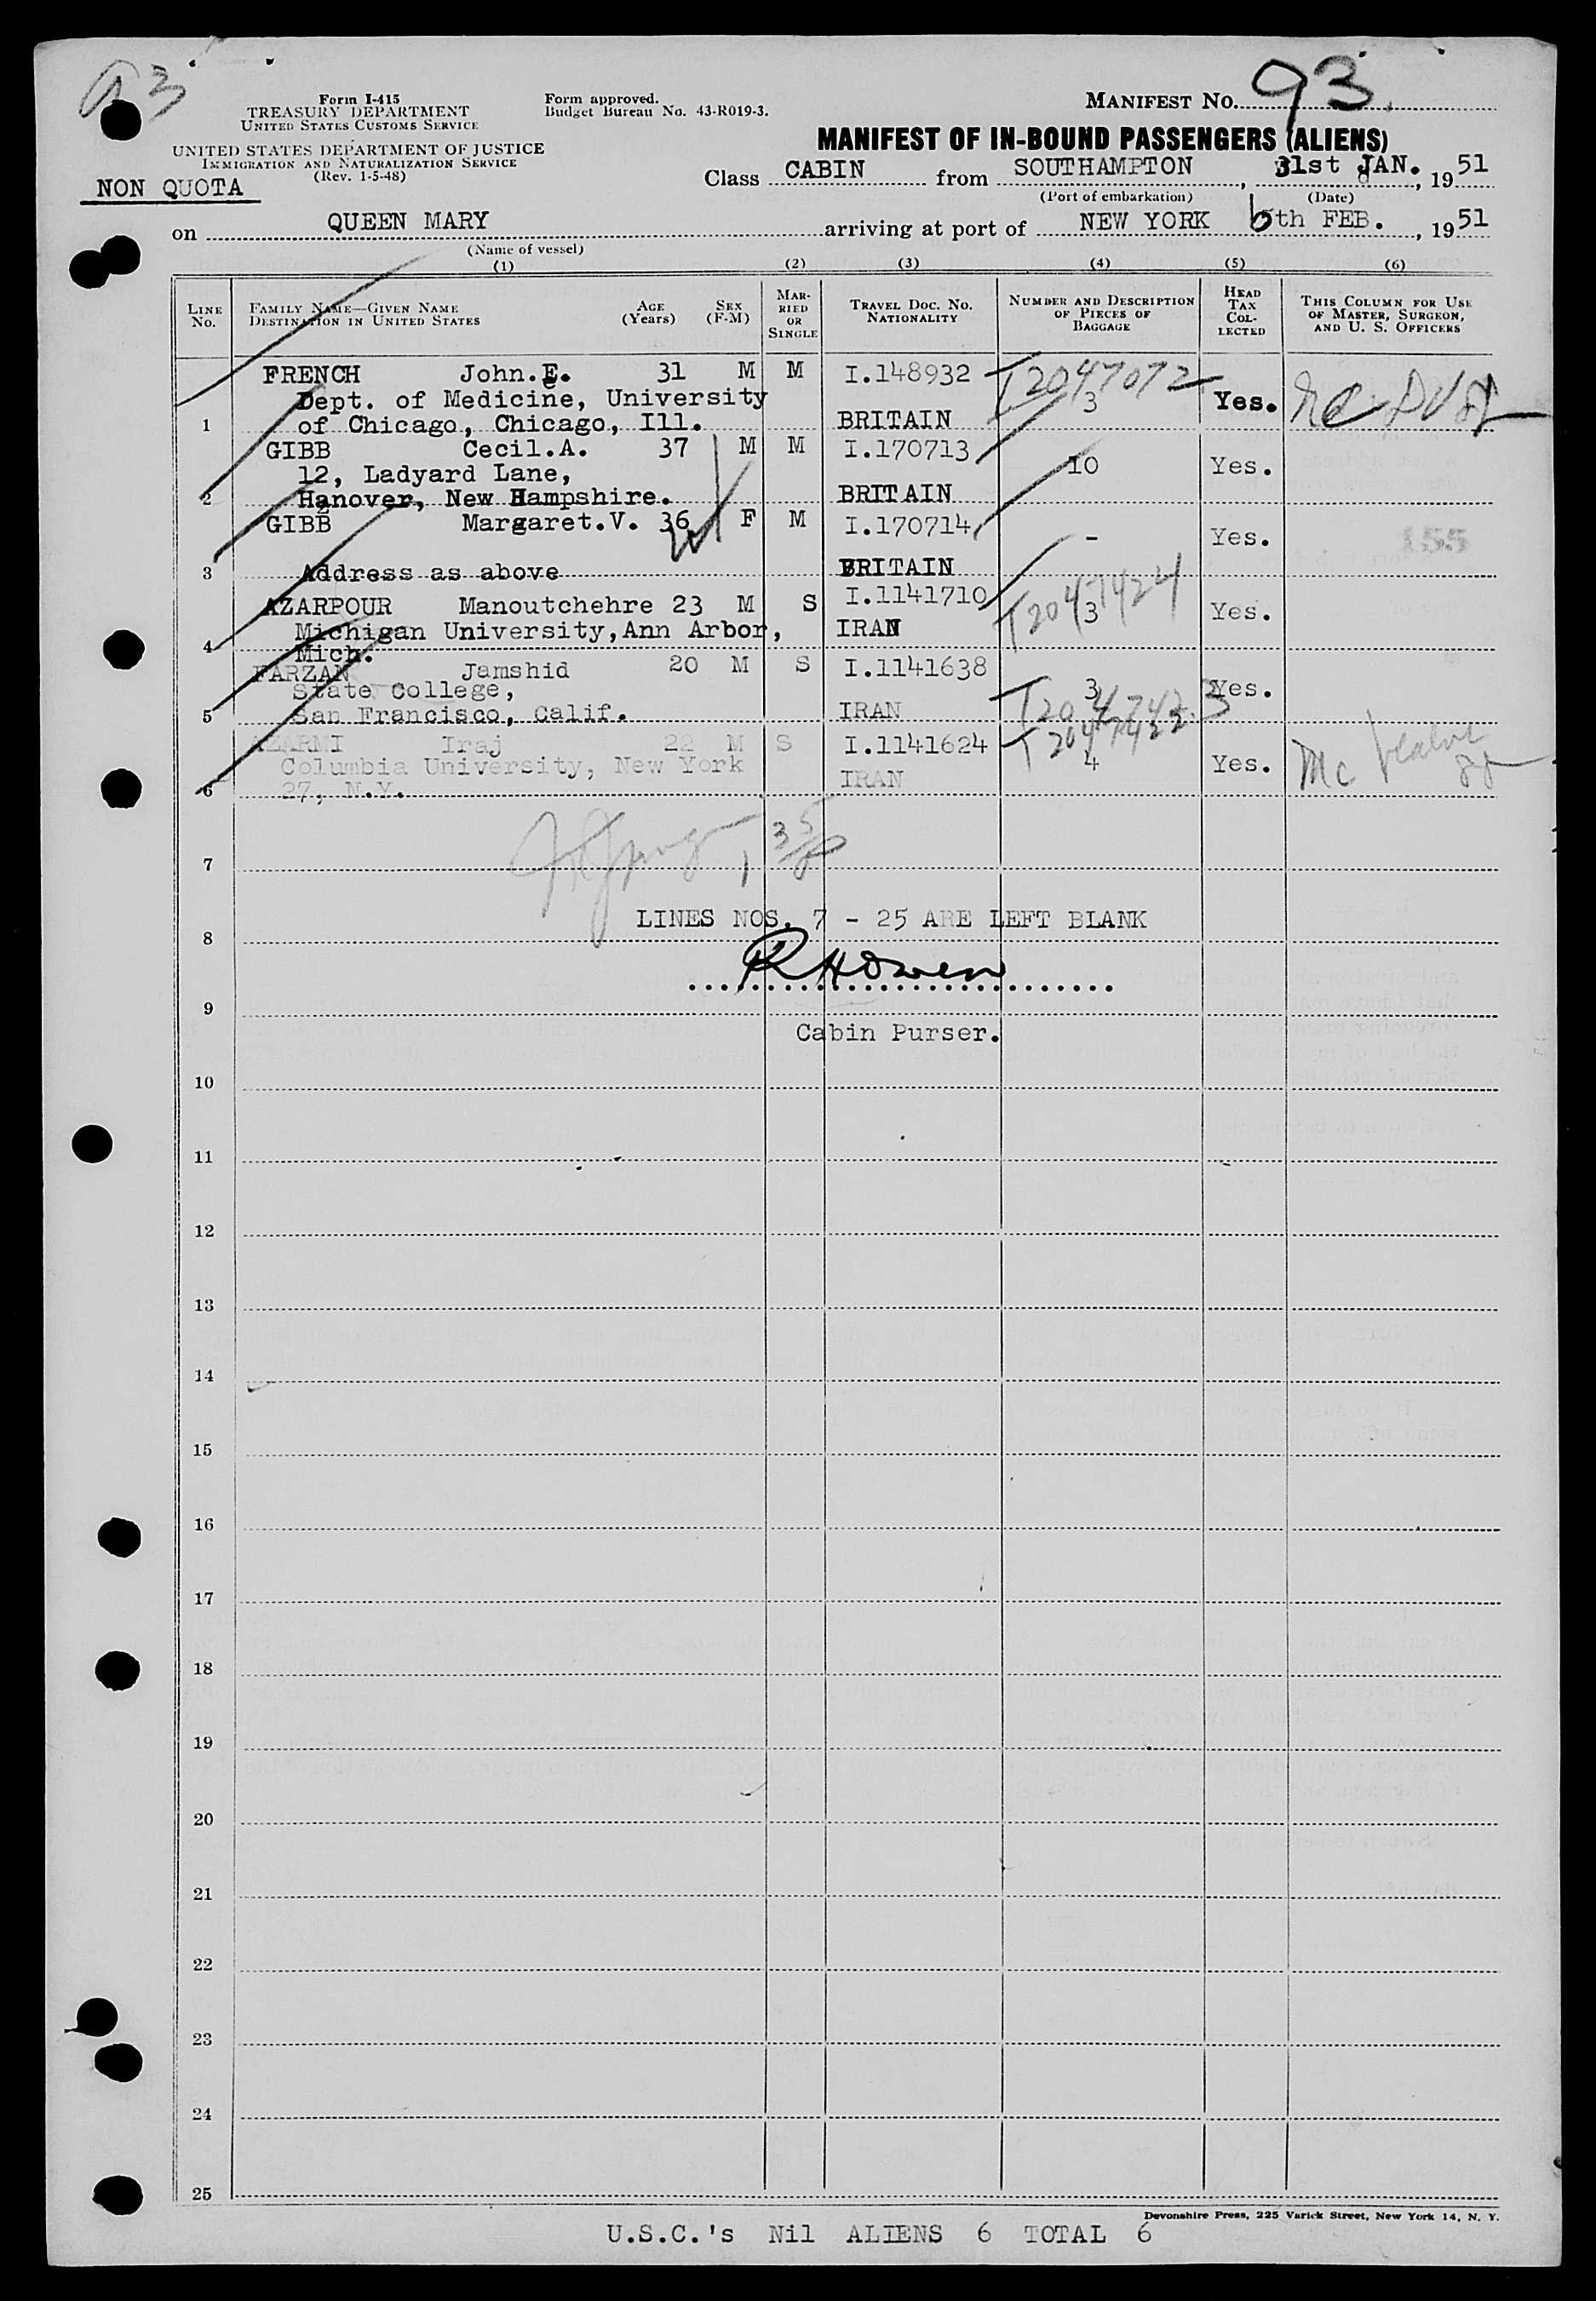 93
Form I-415
TREASURY DEPARTMENT
UNITED STATES CUSTOMS SERVICE
UNITED STATES DEPARTMENT OF JUSTICE
IMMIGRATION AND NATURALIZATION SERVICE
(Rev. 1-5-48)
NON QUOTA
Form approved.
Budget Bureau No. 43-R019-3.
MANIFEST NO. 93
MANIFEST OF IN-BOUND PASSENGERS (ALIENS)
Class CABIN from SOUTHAMPTON, 31st JAN., 1951
(Port of embarkation) (Date)
on QUEEN MARY arriving at port of NEW YORK 6th FEB., 1951
(Name of vessel)
(1) (2) (3) (4) (5) (6)
LINE No. FAMILY NAME—GIVEN NAME DESTINATION IN UNITED STATES AGE (Years) SEX (F-M) MARRIED OR SINGLE TRAVEL DOC. NO. NATIONALITY NUMBER AND DESCRIPTION OF PIECES OF BAGGAGE HEAD TAX COLLECTED THIS COLUMN FOR USE OF MASTER, SURGEON, AND U. S. OFFICERS
FRENCH John.E. 31 M M I.148932 T2047072
Dept. of Medicine, University 3 Yes.
1 of Chicago, Chicago, Ill. BRITAIN
GIBB Cecil.A. 37 M M I.170713
12, Ladyard Lane, 10 Yes.
2 Hanover, New Hampshire. BRITAIN
GIBB Margaret.V. 36 F M I.170714
- Yes. 155
3 Address as above BRITAIN
AZARPOUR Manoutchehre 23 M S I.1141710 T2047424
Michigan University, Ann Arbor, IRAN 3 Yes.
4 Mich.
FARZAN Jamshid 20 M S I.1141638
State College, 3 Yes.
5 San Francisco, Calif. IRAN T2047423
AZARMI Iraj 22 M S I.1141624 T2047422
Columbia University, New York 4 Yes. Mc
6 27, N.Y. IRAN
7
LINES NOS. 7 - 25 ARE LEFT BLANK
8
RHOwen
9
Cabin Purser.
10
11
12
13
14
15
16
17
18
19
20
21
22
23
24
25
Devonshire Press, 225 Varick Street, New York 14, N. Y.
U.S.C.'s Nil ALIENS 6 TOTAL 6